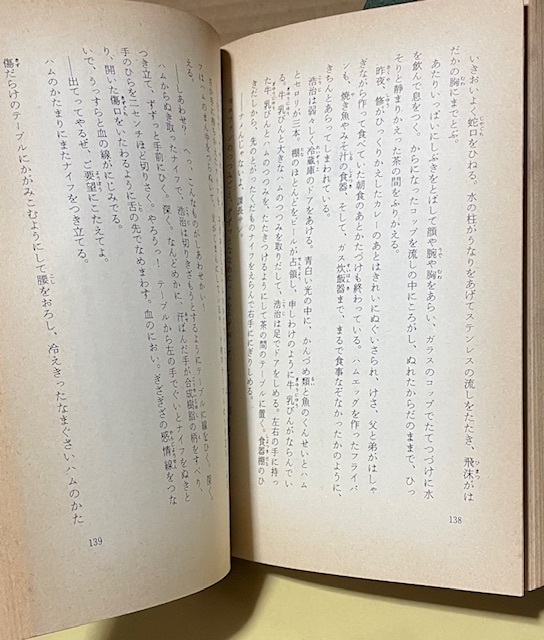 いきおいよく蛇口をひねる。水の柱がうなりをあげてステンレスの流しをたたき、飛沫がは
だかの胸にまでとぶ。
あたりいっぱいにしぶきをとばして顔や腕や胸をあらい、ガラスのコップでたてつづけに水
を飲んで息をつく。からになったコップを流しの中にころがし、ぬれたからだのままで、ひっ
そりと静まりかえった茶の間をふりかえる。
昨夜、修がひっくりかえしたカレーのあとはきれいにぬぐいさられ、けさ、父と弟がはしゃ
ぎながら作って食べていた朝食のあとかたづけも終わっている。ハムエッグを作ったフライパ
ンも、焼き魚やみそ汁の食器、そして、ガス炊飯器まで、まるで食事なぞなかったかのように、
きちんとあらってしまわれている。
浩治は弱々しく冷蔵庫のドアをあける。青白い光の中に、かんづめ類と魚のくんせいとハム
とセロリが三本。棚のほとんどをビールが占領し、申しわけのように牛乳びんがならんでい
る。牛乳びんと大きなハムのつつみを取りだして、浩治は足でドアをしめる。左右の手に持っ
た牛乳びんとハムのつつみを、たたきつけるようにして茶の間のテーブルに置く。食器棚のひ
きだしから、先のとがったくだもののナイフをえらんで右手ににぎりしめる。
138
える。
――しあわせ？ へっ、こんなものがしあわせかい！
ハムからぬき取ったナイフで、浩治は切りきざもうとするようにテーブルに線をひく。深く。
つき立て、ずずっと手前にひく、深く。なんどめかに、汗ばんだ手が合成樹脂の柄をすべり、
手のひらを二センチほど切りさく。やろうっ！ テーブルから左の手でぐいとナイフをぬきと
り、開いた傷口をいたわるように舌の先でなめまわす。血のにおい。ぎざぎざの感情線をつな
いで、うっすらと血の線がにじみでる。
――出てってやるぜ、ご要望にこたえてよ。
ハムのかたまりにまたナイフをつき立てる。
傷だらけのテーブルにかがみこむようにして腰をおろし、冷えきったなまぐさいハムのかた
139